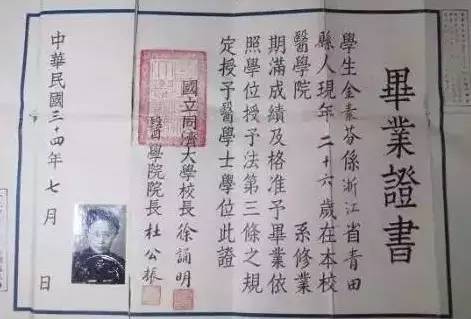 畢業證書
學生金素芬係浙江省青田
縣人現年二十六歲在本校
醫學院 系修業
期滿成績及格准予畢業依
照學位授予法第三條之規
定授予醫學士學位此證
國立同濟大學校長徐誦明
醫學院院長杜公振
中華民國三十四年七月 日